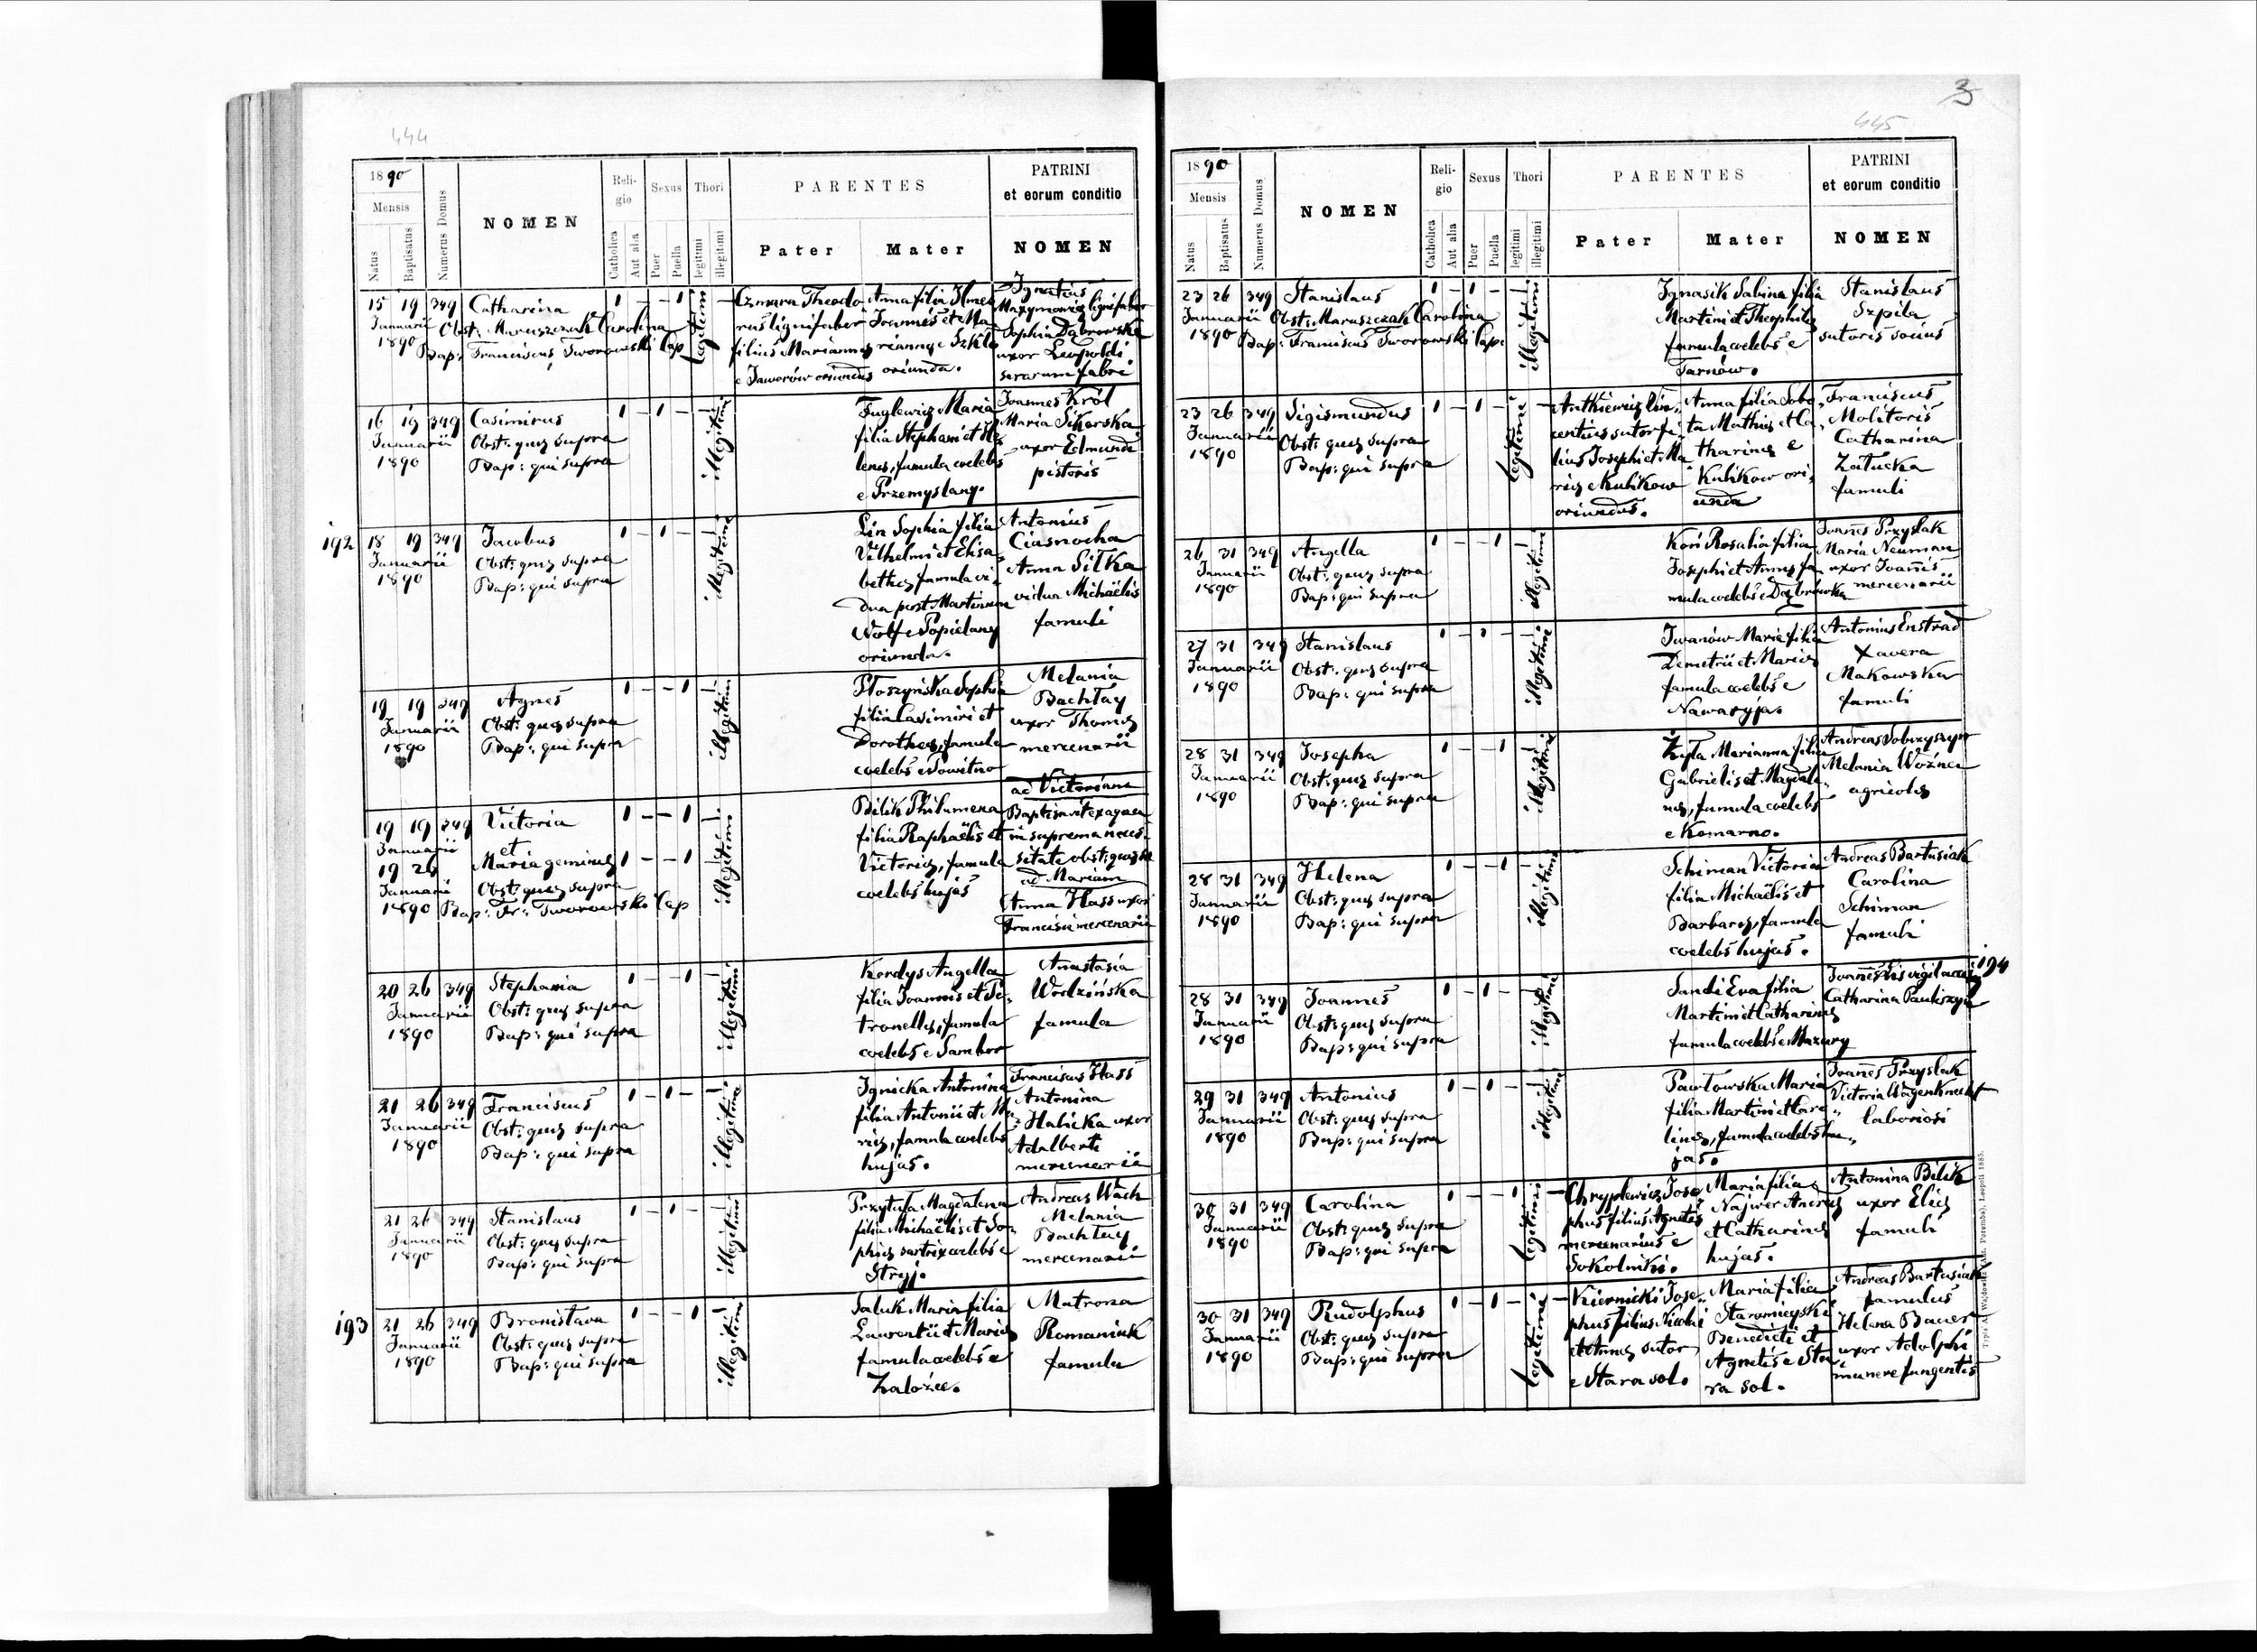 444
1890
Mensis
Natus
Baptisatus
Numerus Domus
NOMEN
Reli-
gio
Catholica
Aut alia
Sexus
Puer
Puella
Thori
legitimi
illegitimi
PARENTES
Pater
Mater
PATRINI
et eorum conditio
NOMEN
15 19 349
Januarii
1890
Catharina
Obst: Maruszczak Carolina
Bap: Franciscus Tworowski Cap
1 – – 1
Legitimi
Czmara Theodo
rus lignifaber
filius Mariannę
e Jaworów oriundus
Anna filia
Joannis et Ma
riannę e
oriunda.
Ignatius
lignifaber
Sophia Dąbrowska
uxor Leopoldi
serarum fabri
16 19 349
Januarii
1890
Casimirus
Obst: quę supra
Bap: qui supra
1 – 1 –
illegitimi
Fuglewicz Maria
filia Stephani et He
lenę, famula coelebs
e Przemyslany.
Joannes Król
Maria Sikorska
uxor Edmundi
pistoris
192
18 19 349
Januarii
1890
Jacobus
Obst: quę supra
Bap: qui supra
1 – 1 –
illegitimi
Lin Sophia filia
Vilhelmi et Elisa
bethę, famula vi
dua post Martinum
Wolf e Popielany
oriunda.
Antonius
Ciasnocha
Anna Sitka
vidua Michaëlis
famuli
19 19 349
Januarii
1890
Agnes
Obst: quę supra
Bap: qui supra
1 – – 1
illegitimi
Ptoszyńska Sophia
filia Casimiri et
Dorotheę, famula
coelebs e
Melania
Bachtay
uxor Thomę
mercenarii
19 19 349
Januarii
19 26
Januarii
1890
Victoria
et
Maria geminę
Obst: quę supra
Bap: Fr: Tworowski Cap
1 – – 1
1 – – 1
illegitimi
Bilik Philumena
filia Raphaëlis et
Victorię, famula
coelebs hujas
ad Victoriam
Baptisavit ex aqua
in suprema neces-
sitate obst: quę
ad Mariam
Anna Hass uxor
Francisci mercenarii
20 26 349
Januarii
1890
Stephania
Obst: quę supra
Bap: qui supra
1 – – 1
illegitimi
Kordys Angella
filia Joannis et Pe-
tronellę, famula
coelebs e Sambor
Anastasia
Wodzińska
famula
21 26 349
Januarii
1890
Franciscus
Obst: quę supra
Bap: qui supra
1 – 1 –
illegitimi
Ignicka Antonina
filia Antonii et Ma
rię, famula coelebs
hujas.
Franciscus Hass
Antonina
Halicka uxor
Adalberti
mercenarii
21 26 349
Januarii
1890
Stanislaus
Obst: quę supra
Bap: qui supra
1 – 1 –
illegitimi
Przytuła Magdalena
filia Michaëlis et So-
phię sartrix coelebs e
Stryj.
Andreas Wach
Melania
Bachtay
mercenarii
193
21 26 349
Januarii
1890
Bronisłava
Obst: quę supra
Bap: qui supra
1 – – 1
illegitimi
Saluk Maria filia
Laurentii et Marię
famula coelebs e
Załoźce.
Matrona
Romaniuk
famula
3
445
1890
Mensis
Natus
Baptisatus
Numerus Domus
NOMEN
Reli-
gio
Catholica
Aut alia
Sexus
Puer
Puella
Thori
legitimi
illegitimi
PARENTES
Pater
Mater
PATRINI
et eorum conditio
NOMEN
23 26 349
Januarii
1890
Stanislaus
Obst: Maruszczak Carolina
Bap: Franciscus Tworowski Cap:
1 – 1 –
illegitimi
Ignasik Sabina filia
Martini et Theophilę
famula coelebs e
Tarnów.
Stanislaus
Szpila
sutoris socius
23 26 349
Januarii
1890
Sigismundus
Obst: quę supra
Bap: qui supra
1 – 1 –
Legitimi
Antkiewicz Vin-
centius sutor fi-
lius Josephi et Ma
rię e Kulikow
oriundus.
Anna filia Sobo
ta Mathię et Ca
tharinę e
Kulikow ori-
unda
Franciscus
Molitoris
Catharina
Załucka
famuli
26 31 349
Januarii
1890
Angella
Obst: quę supra
Bap: qui supra
1 – – 1
illegitimi
Koń Rosalia filia
Josephi et Annę fa
mula coelebs e Dąbrówka
Joannes Przyslak
Maria Neuman
uxor Joannis
mercenarii
27 31 349
Januarii
1890
Stanislaus
Obst: quę supra
Bap: qui supra
1 – 1 –
illegitimi
Iwanów Maria filia
Demetrii et Marię
famula coelebs e
Nawaryja.
Antonius Enstrad
Xavera
Makowska
famuli
28 31 349
Januarii
1890
Josepha
Obst: quę supra
Bap: qui supra
1 – – 1
illegitimi
Żyła Marianna filia
Gabrielis et Magdale-
nę, famula coelebs
e Komarno.
Andreas Sobczyszyn
Melania Woźna
agricolę
28 31 349
Januarii
1890
Helena
Obst: quę supra
Bap: qui supra
1 – – 1
illegitimi
Schiman Victoria
filia Michaëlis et
Barbarę, famula
coelebs hujas.
Andreas Bartusiak
Carolina
Schiman
famuli
194
28 31 349
Januarii
1890
Joannes
Obst: quę supra
Bap: qui supra
1 – 1 –
illegitimi
Sandi Eva filia
Martini et Catharinę
famula coelebs e Mazury
Joannes Lis
Catharina Pauliszyn
29 31 349
Januarii
1890
Antonius
Obst: quę supra
Bap: qui supra
1 – 1 –
illegitimi
Pawłowska Maria
filia Martini et Caro-
linę, famula coelebs hu-
jas.
Joannes Przyslak
Victoria Wagenknecht
laboriosi
30 31 349
Januarii
1890
Carolina
Obst: quę supra
Bap: qui supra
1 – – 1
Legitimi
Chryplewicz Jose-
phus filius Agnetis
mercenarius e
Sokolniki.
Maria filia
Najwer Andreę
et Catharinę
hujas.
Antonina Bilik
uxor Elię
famuli
30 31 349
Januarii
1890
Rudolphus
Obst: quę supra
Bap: qui supra
1 – 1 –
Legitimi
Kiernicki Jose-
phus filius Nicolai
et Annę sutor
e Stara sol.
Maria filia
Staromiejski
Benedicti et
Agnetis e Sta
ra sol.
Andreas Bartusiak
famulus
Helena Bauer
uxor Adolphi
munere fungentis